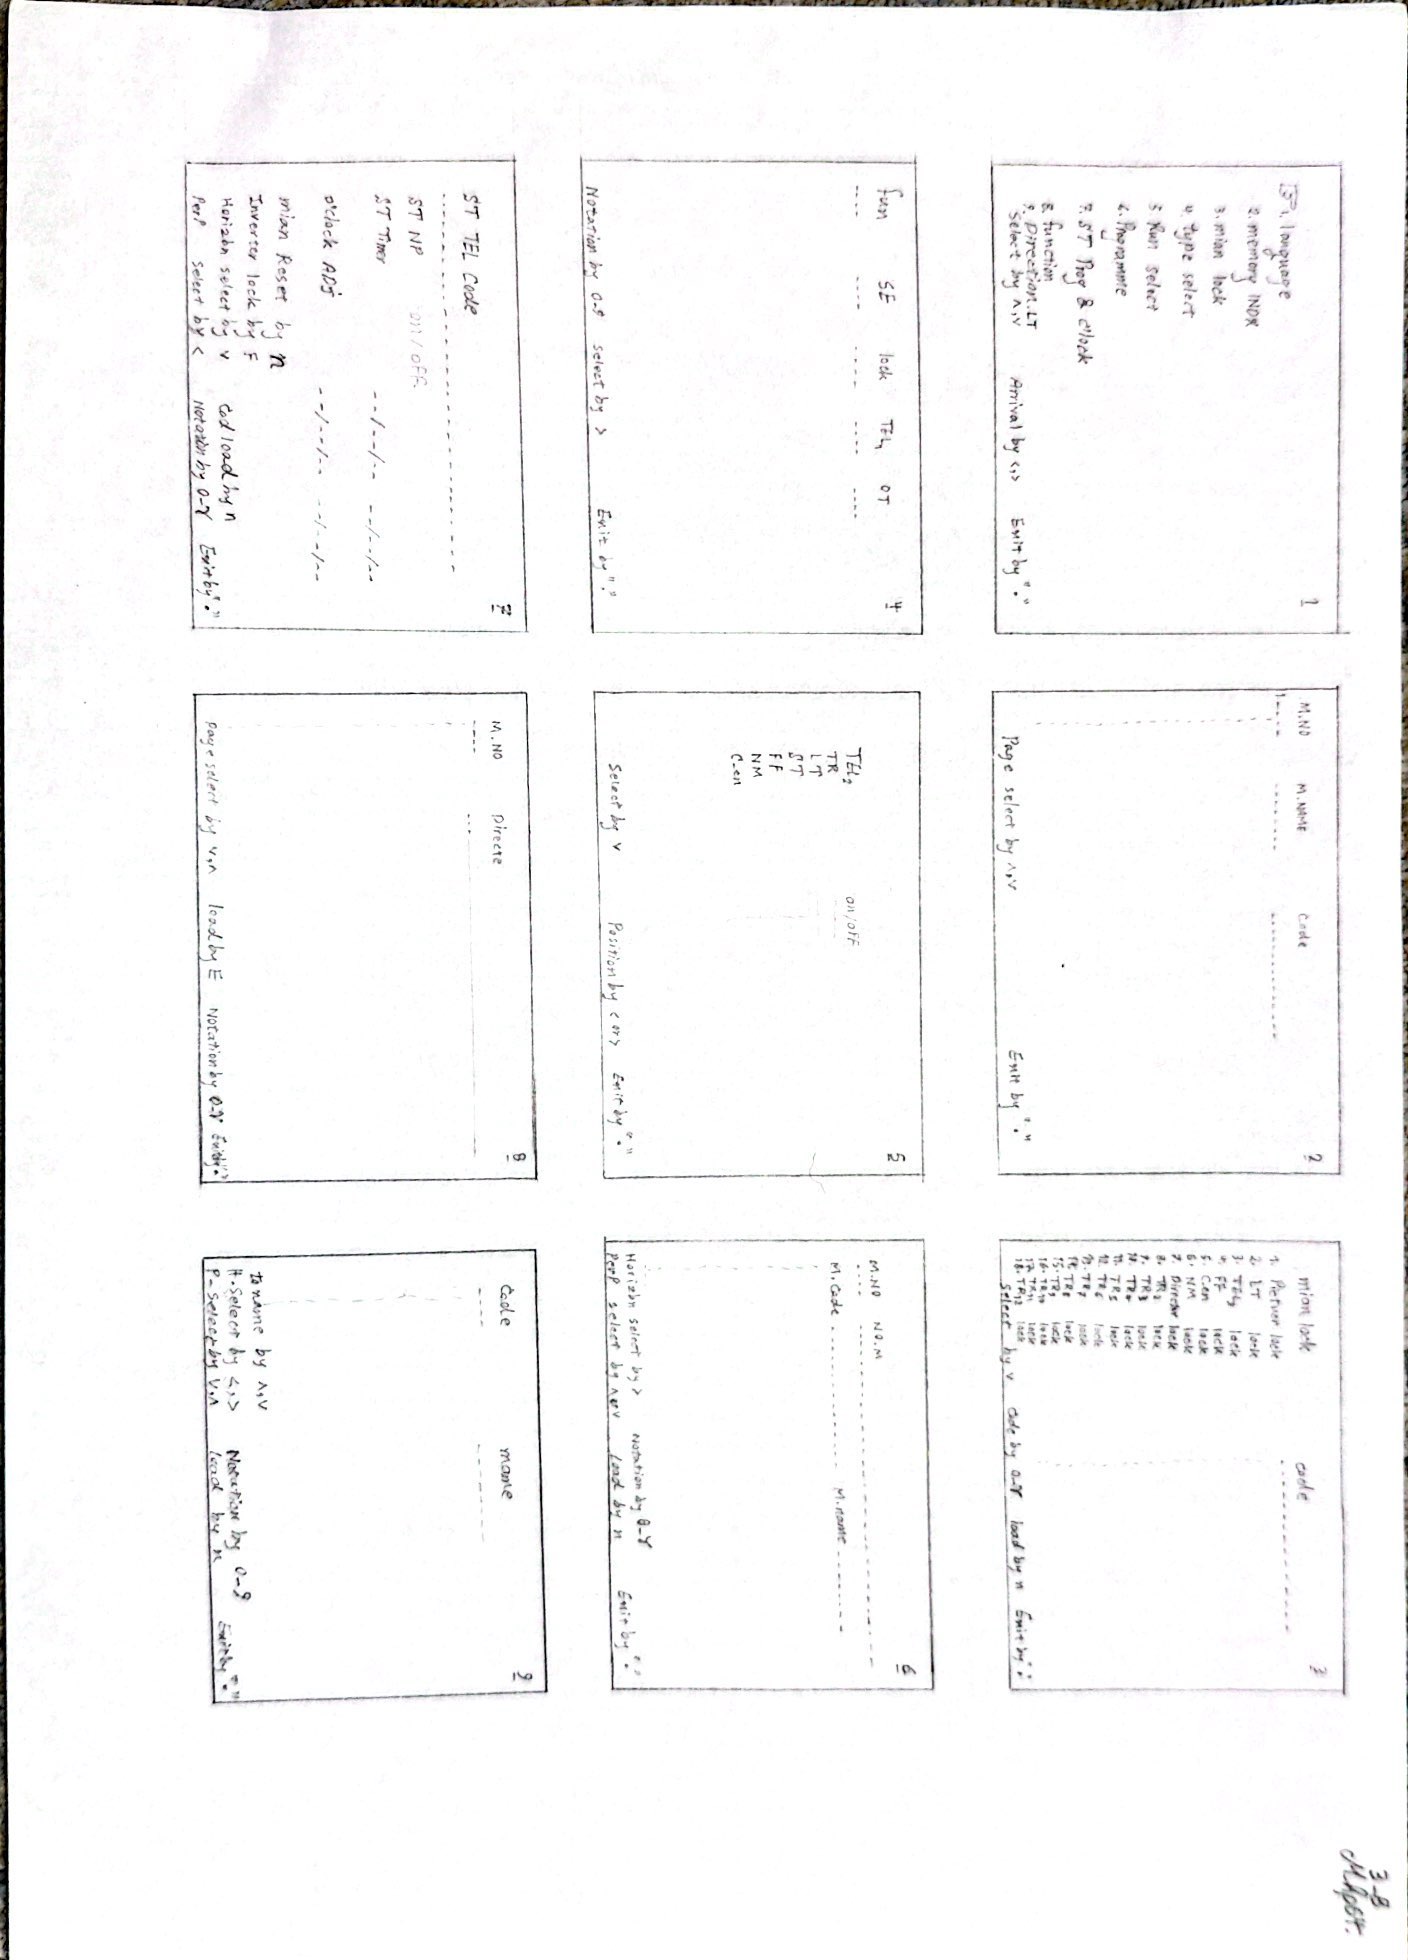 3-8
1
1. language
2. memory INDX
3. mian lock
4. type select
5. Run select
6. Programme
7. ST Prog & o'clock
8. function
9. Direction.LT
Select by ∧,∨ Arrival by <,> Exit by "."
2
M.NO M.NAME Code
1----
Page select by ∧,∨ Exit by "."
3
mian lock code
1. Pictuer lock
2. LT lock
3. TEL2 lock
4. FF lock
5. C.en lock
6. NM lock
7. Director lock
8. TR2 lock
9. TR3 lock
10. TR4 lock
11. TR5 lock
12. TR6 lock
13. TR7 lock
14. TR8 lock
15. TR9 lock
16. TR10 lock
17. TR11 lock
18. TR12 lock
select by ∨ code by 0-9 load by n Exit by "."
4
fun SE lock TEL1 OT
---- ---- ---- ---- ----
Notation by 0-9 select by > Exit by "."
5
TEL2 on/off
TR
LT
ST
FF
NM
C-en
Select by ∨ Position by < or > Exit by "."
6
M.NO NO.M
M.Code M.name
Horizbn select by > Notation by 0-9
PerP select by ∧or∨ Load by n Exit by "."
7
ST TEL Code
ST NP on/off
ST Timer --/--/-- --/--/--
o'clock ADj --/--/-- --/--/--
mian Reset by n
Inverter lock by F
Horizbn select by ∨ Cod load by n
PerP select by < Notation by 0-9 Exit by "."
8
M.NO Directe
Page select by ∨,∧ load by E Notation by 0-9 Exit by "."
9
Code mame
to name by ∧,∨
H-Select by <,> Notation by 0-9
P-Select by ∨,∧ load by n Exit by "."